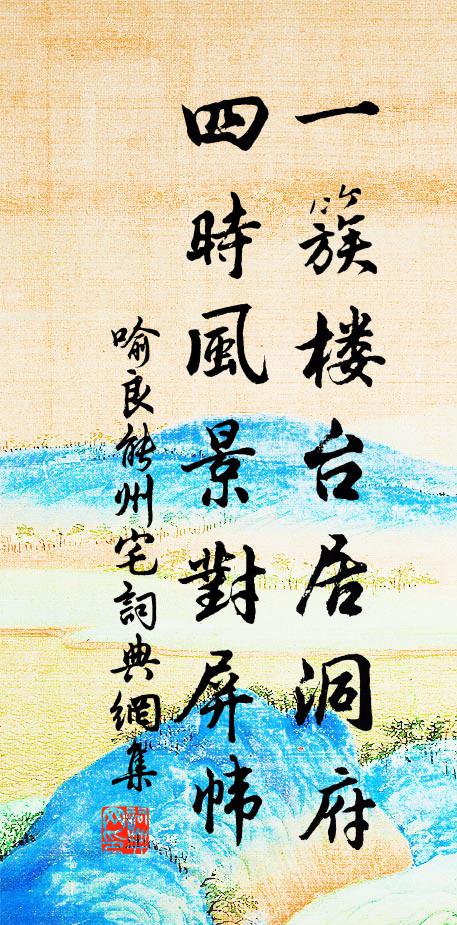 一簇楼台居洞府
四時風景對屏帏
喻良能州宅詞典網集